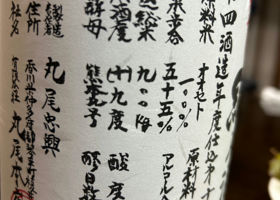 四酒造年度仕込第十
原料米 オオセト 一〇〇% 原材料
米歩合 五十五% アルコール
総米 九〇〇kg
酒度 (十)九度 酸度
酵母 熊本九号 醪日数
製造責任者 丸尾忠興
住所 香川県仲多度郡琴平町榎
社名 有限会社 丸尾本